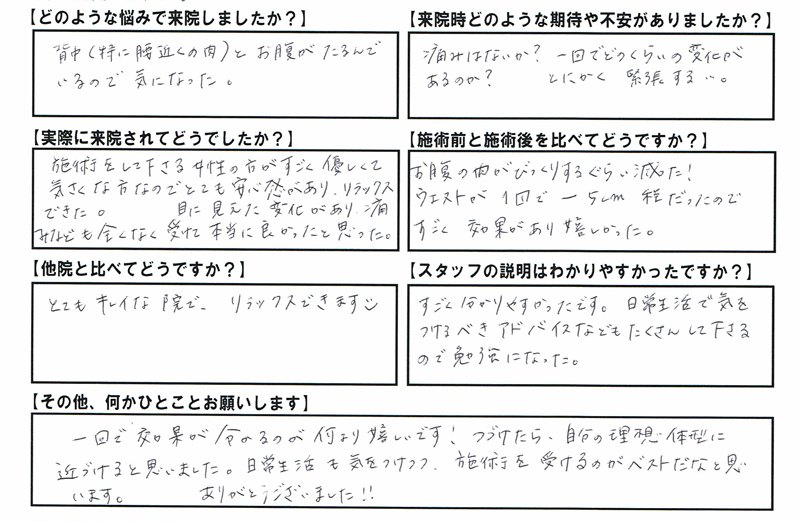 【どのような悩みで来院しましたか？】
背中(特に腰近くの肉)と お腹が たるんで
いるので 気になった。
【来院時どのような期待や不安がありましたか？】
痛みはないか？ 一回でどのくらいの変化が
あるのか？ とにかく 緊張する…。
【実際に来院されてどうでしたか？】
施術をして下さる 女性の方がすごく 優しくて
気さくな方なのでとても 安心感があり、リラックス
できた。 目に見えた 変化があり、痛
みなども 全くなく 受けて 本当に 良かったと思った。
【施術前と施術後を比べてどうですか？】
お腹の肉がびっくりするぐらい 減った！
ウエストが 1回で −5cm 程だったので
すごく 効果があり 嬉しかった。
【他院と比べてどうですか？】
とても キレイな 院で、リラックスできます☺
【スタッフの説明はわかりやすかったですか？】
すごく 分かりやすかったです。 日常生活で 気を
つけるべき アドバイスなども たくさん して下さる
ので 勉強になった。
【その他、何かひとことお願いします】
一回で 効果が 分かるのが 何より 嬉しいです！ つづけたら、自分の 理想 体型に
近づけると思いました。日常生活 も 気をつけつつ、施術を 受けるのが ベストだなと思
います。 ありがとうございました！！